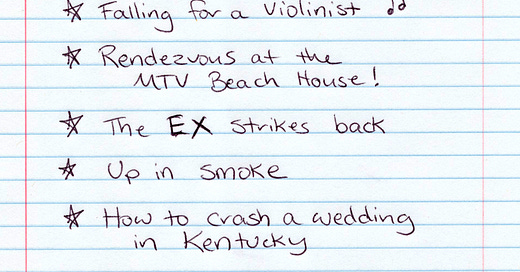 ☆ Falling for a Violinist ♫
☆ Rendezvous at the
MTV Beach House!
☆ The EX strikes back
☆ Up in smoke
☆ How to crash a wedding
in Kentucky